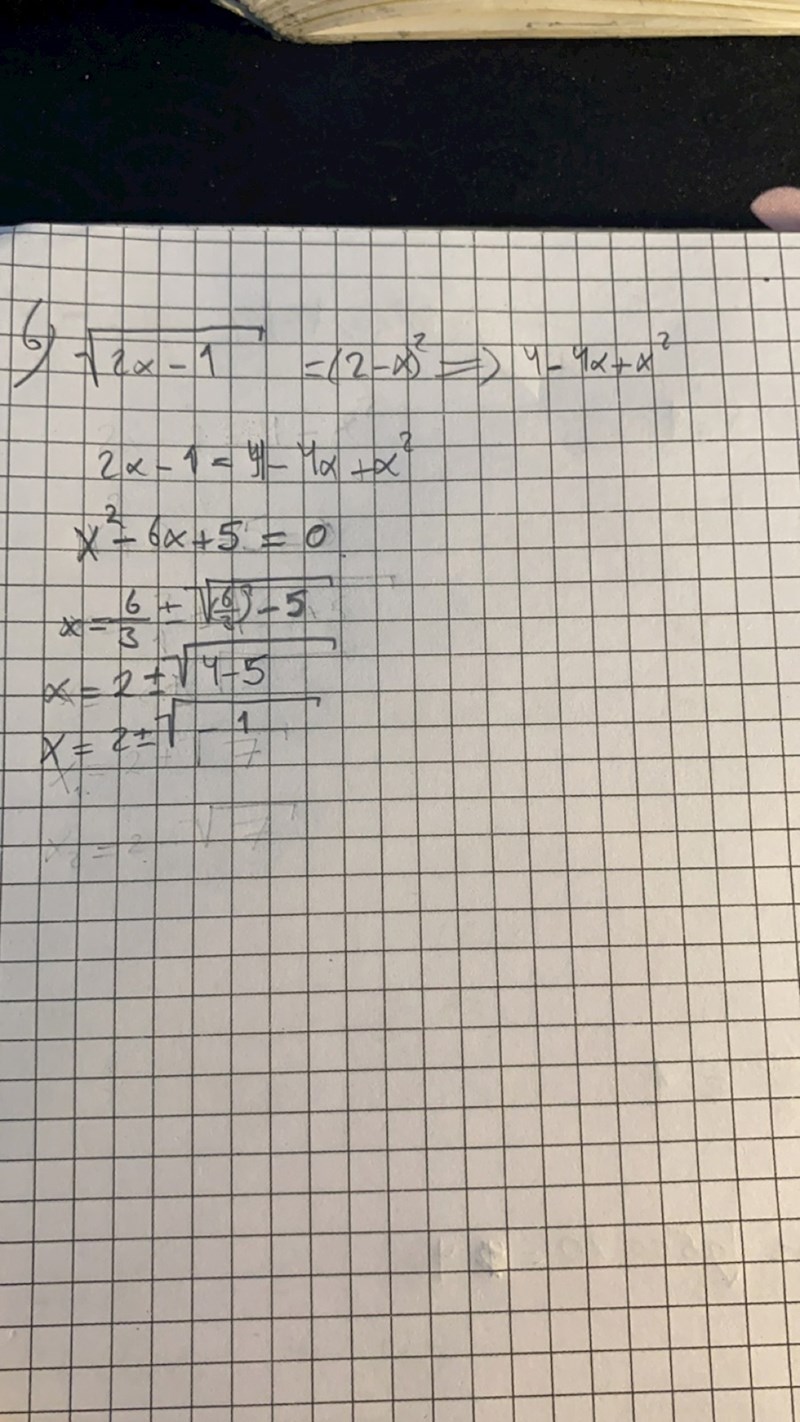 6) √(2x - 1) = (2-x)² => 4 - 4x + x²
2x - 1 = 4 - 4x + x²
x² - 6x + 5 = 0
x = 6/3 ± √((6/3)² - 5)
x = 2 ± √(4-5)
x = 2 ± √(-1)